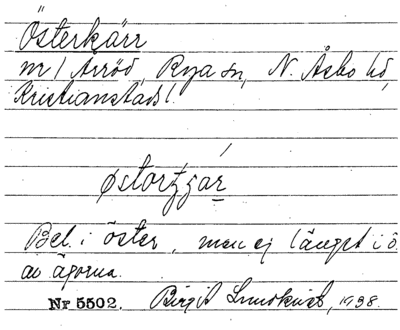 Österkärr
nr 1 Arröd, Rya sn, N. Åsbo hd,
Kristianstads l.
Bel. i öster, men ej längst i ö.
av ägorna.
Nr 5502. Birgit Lundkvist, 1938.